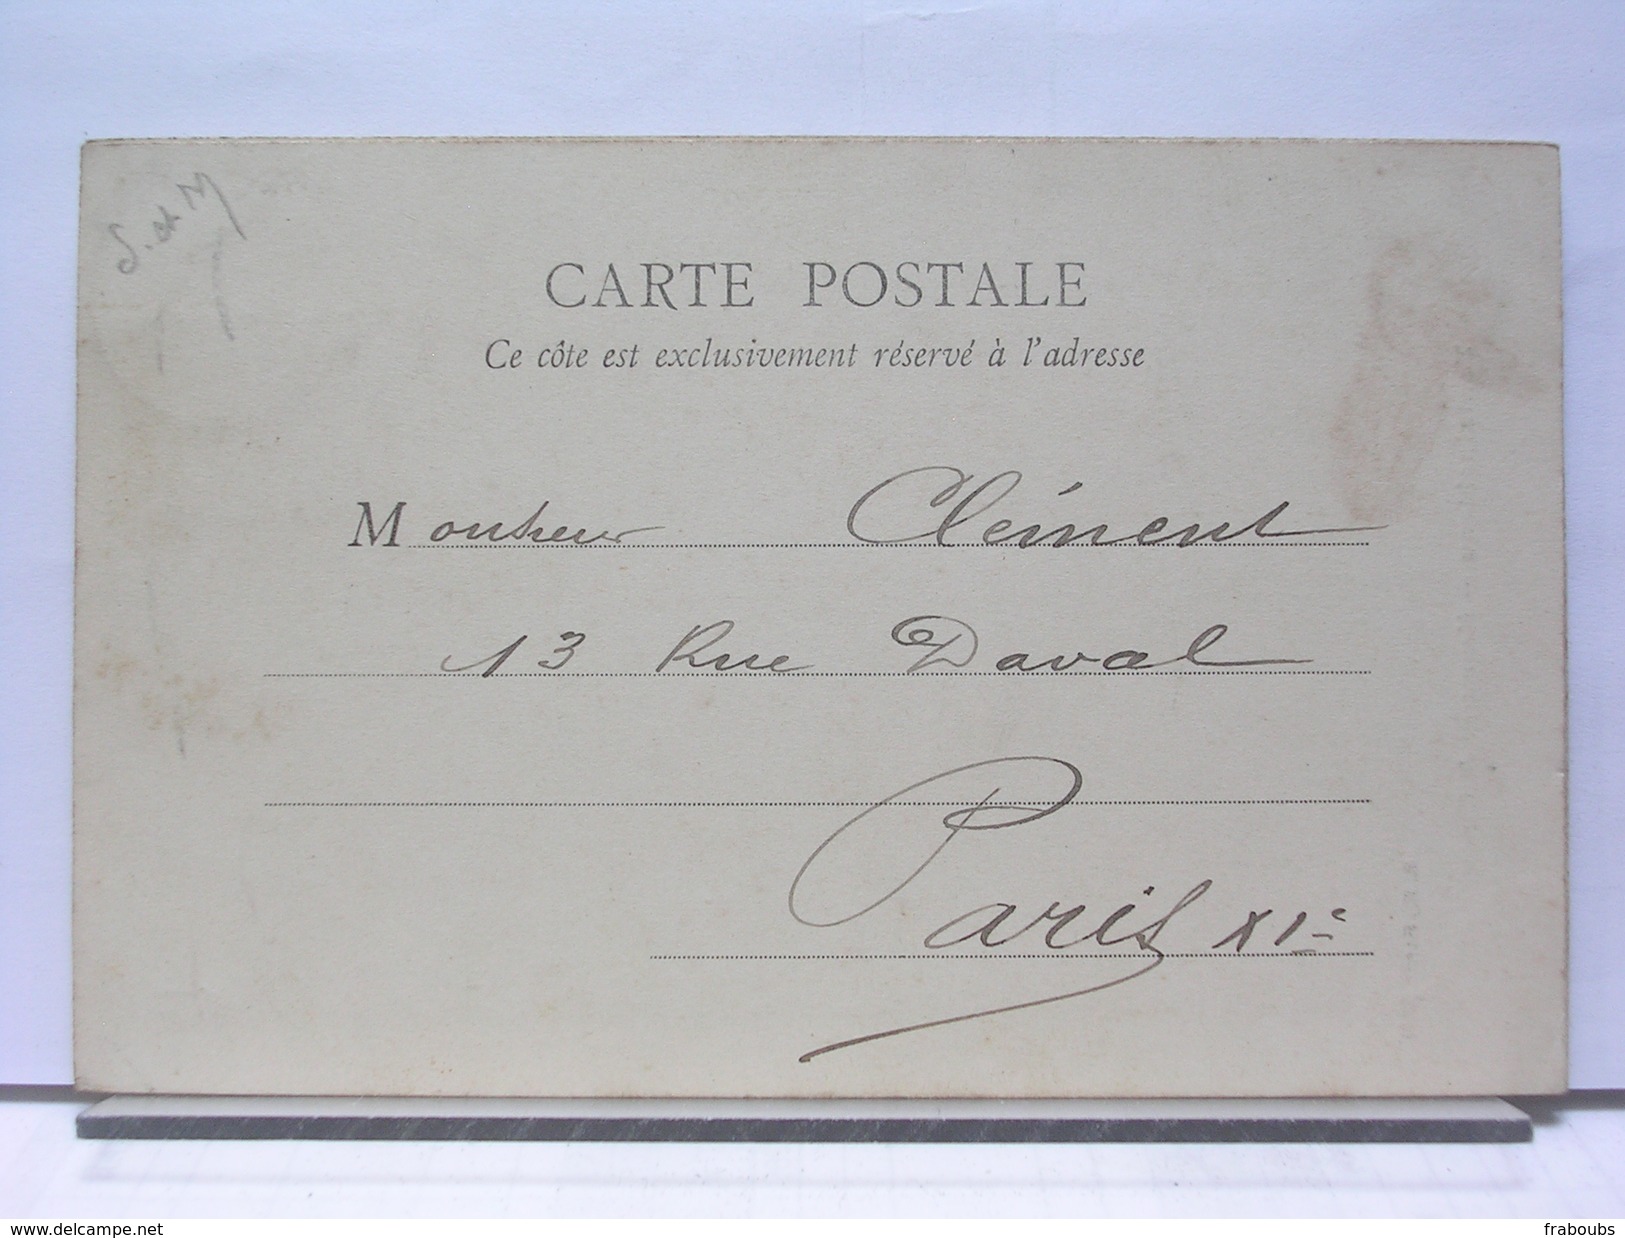 S. et M
CARTE POSTALE
Ce côte est exclusivement réservé à l'adresse
Monsieur Clément
13 Rue Daval
Paris XIe
www.delcampe.net
fraboubs